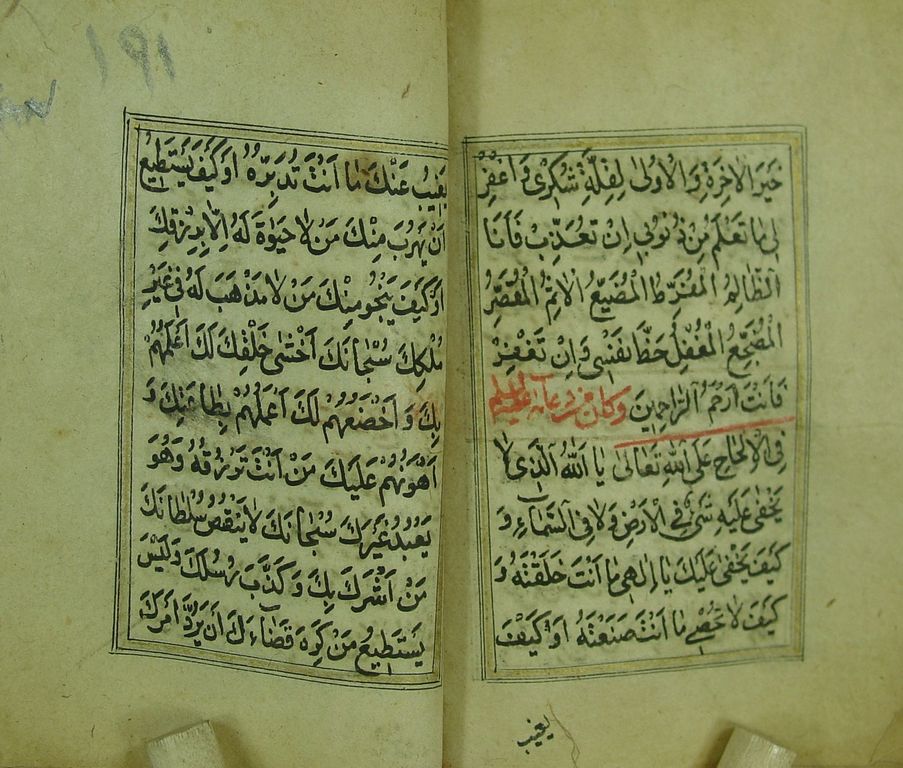 خَيْرَ الْاٰخِرَةِ وَالْاُولٰى لِقِلَّةِ شُكْرٖى وَاغْفِرْ
لٖى مَا تَعْلَمُ مِنْ ذُنُوبٖى اِنْ تُعَذِّبْ فَاَنَا
الظَّالِمُ الْمُفَرِّطُ الْمُضَيِّعُ الْاٰثِمُ الْمُقَصِّرُ
الْمُضَجِّعُ الْمُغْفِلُ حَظَّ نَفْسٖى وَاِنْ تَغْفِرْ
فَاَنْتَ اَرْحَمُ الرَّاحِمٖينَ وكان من دعائه عليه السلام
فِى الْاِلْحَاحِ عَلَى اللّٰهِ تَعَالٰى يَا اَللّٰهُ الَّذٖى لَا
يَخْفٰى عَلَيْهِ شَىْءٌ فِى الْاَرْضِ وَلَا فِى السَّمَآءِ وَ
كَيْفَ يَخْفٰى عَلَيْكَ يَا اِلٰهٖى مَا اَنْتَ خَلَقْتَهُ وَ
كَيْفَ لَا تُحْصٖى مَا اَنْتَ صَنَعْتَهُ اَوْ كَيْفَ
يغيب
١٩١
يَغٖيبُ عَنْكَ مَا اَنْتَ تُدَبِّرُهُ اَوْ كَيْفَ يَسْتَطٖيعُ
اَنْ يَهْرُبَ مِنْكَ مَنْ لَا حَيٰوةَ لَهُ اِلَّا بِرِزْقِكَ
اَوْ كَيْفَ يَنْجُو مِنْكَ مَنْ لَا مَذْهَبَ لَهُ فٖى غَيْرِ
مُلْكِكَ سُبْحَانَكَ اَخْشٰى خَلْقِكَ لَكَ اَعْلَمُهُمْ
بِكَ وَ اَخْضَعُهُمْ لَكَ اَعْمَلُهُمْ بِطَاعَتِكَ وَ
اَهْوَنُهُمْ عَلَيْكَ مَنْ اَنْتَ تَرْزُقُهُ وَهُوَ
يَعْبُدُ غَيْرَكَ سُبْحَانَكَ لَا يَنْقُصُ سُلْطَانَكَ
مَنْ اَشْرَكَ بِكَ وَ كَذَّبَ رُسُلَكَ وَلَيْسَ
يَسْتَطٖيعُ مَنْ كَرِهَ قَضَآءَكَ اَنْ يَرُدَّ اَمْرَكَ